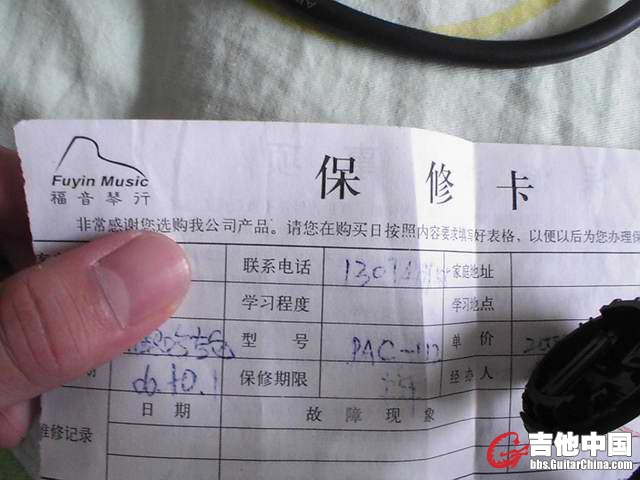 Fuyin Music
福音琴行
保修卡
非常感谢您选购我公司产品。请您在购买日按照内容要求填写好表格，以便以后为您办理保
联系电话 家庭地址
学习程度 学习地点
型号 PAC-112 单价
期 06.10.1 保修期限 经办人
日期 故障现象
维修记录
吉他中国
bbs.GuitarChina.com